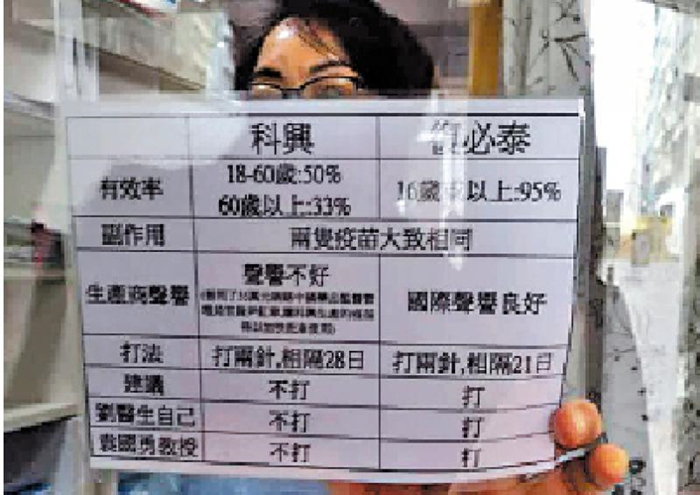 科興 復必泰
有效率 18-60歲:50% 16歲或以上:95%
60歲以上:33%
副作用 兩隻疫苗大致相同
生產商聲譽 聲譽不好 國際聲譽良好
打法 打兩針,相隔28日 打兩針,相隔21日
建議 不打 打
劉醫生自己 不打 打
袁國勇教授 不打 打